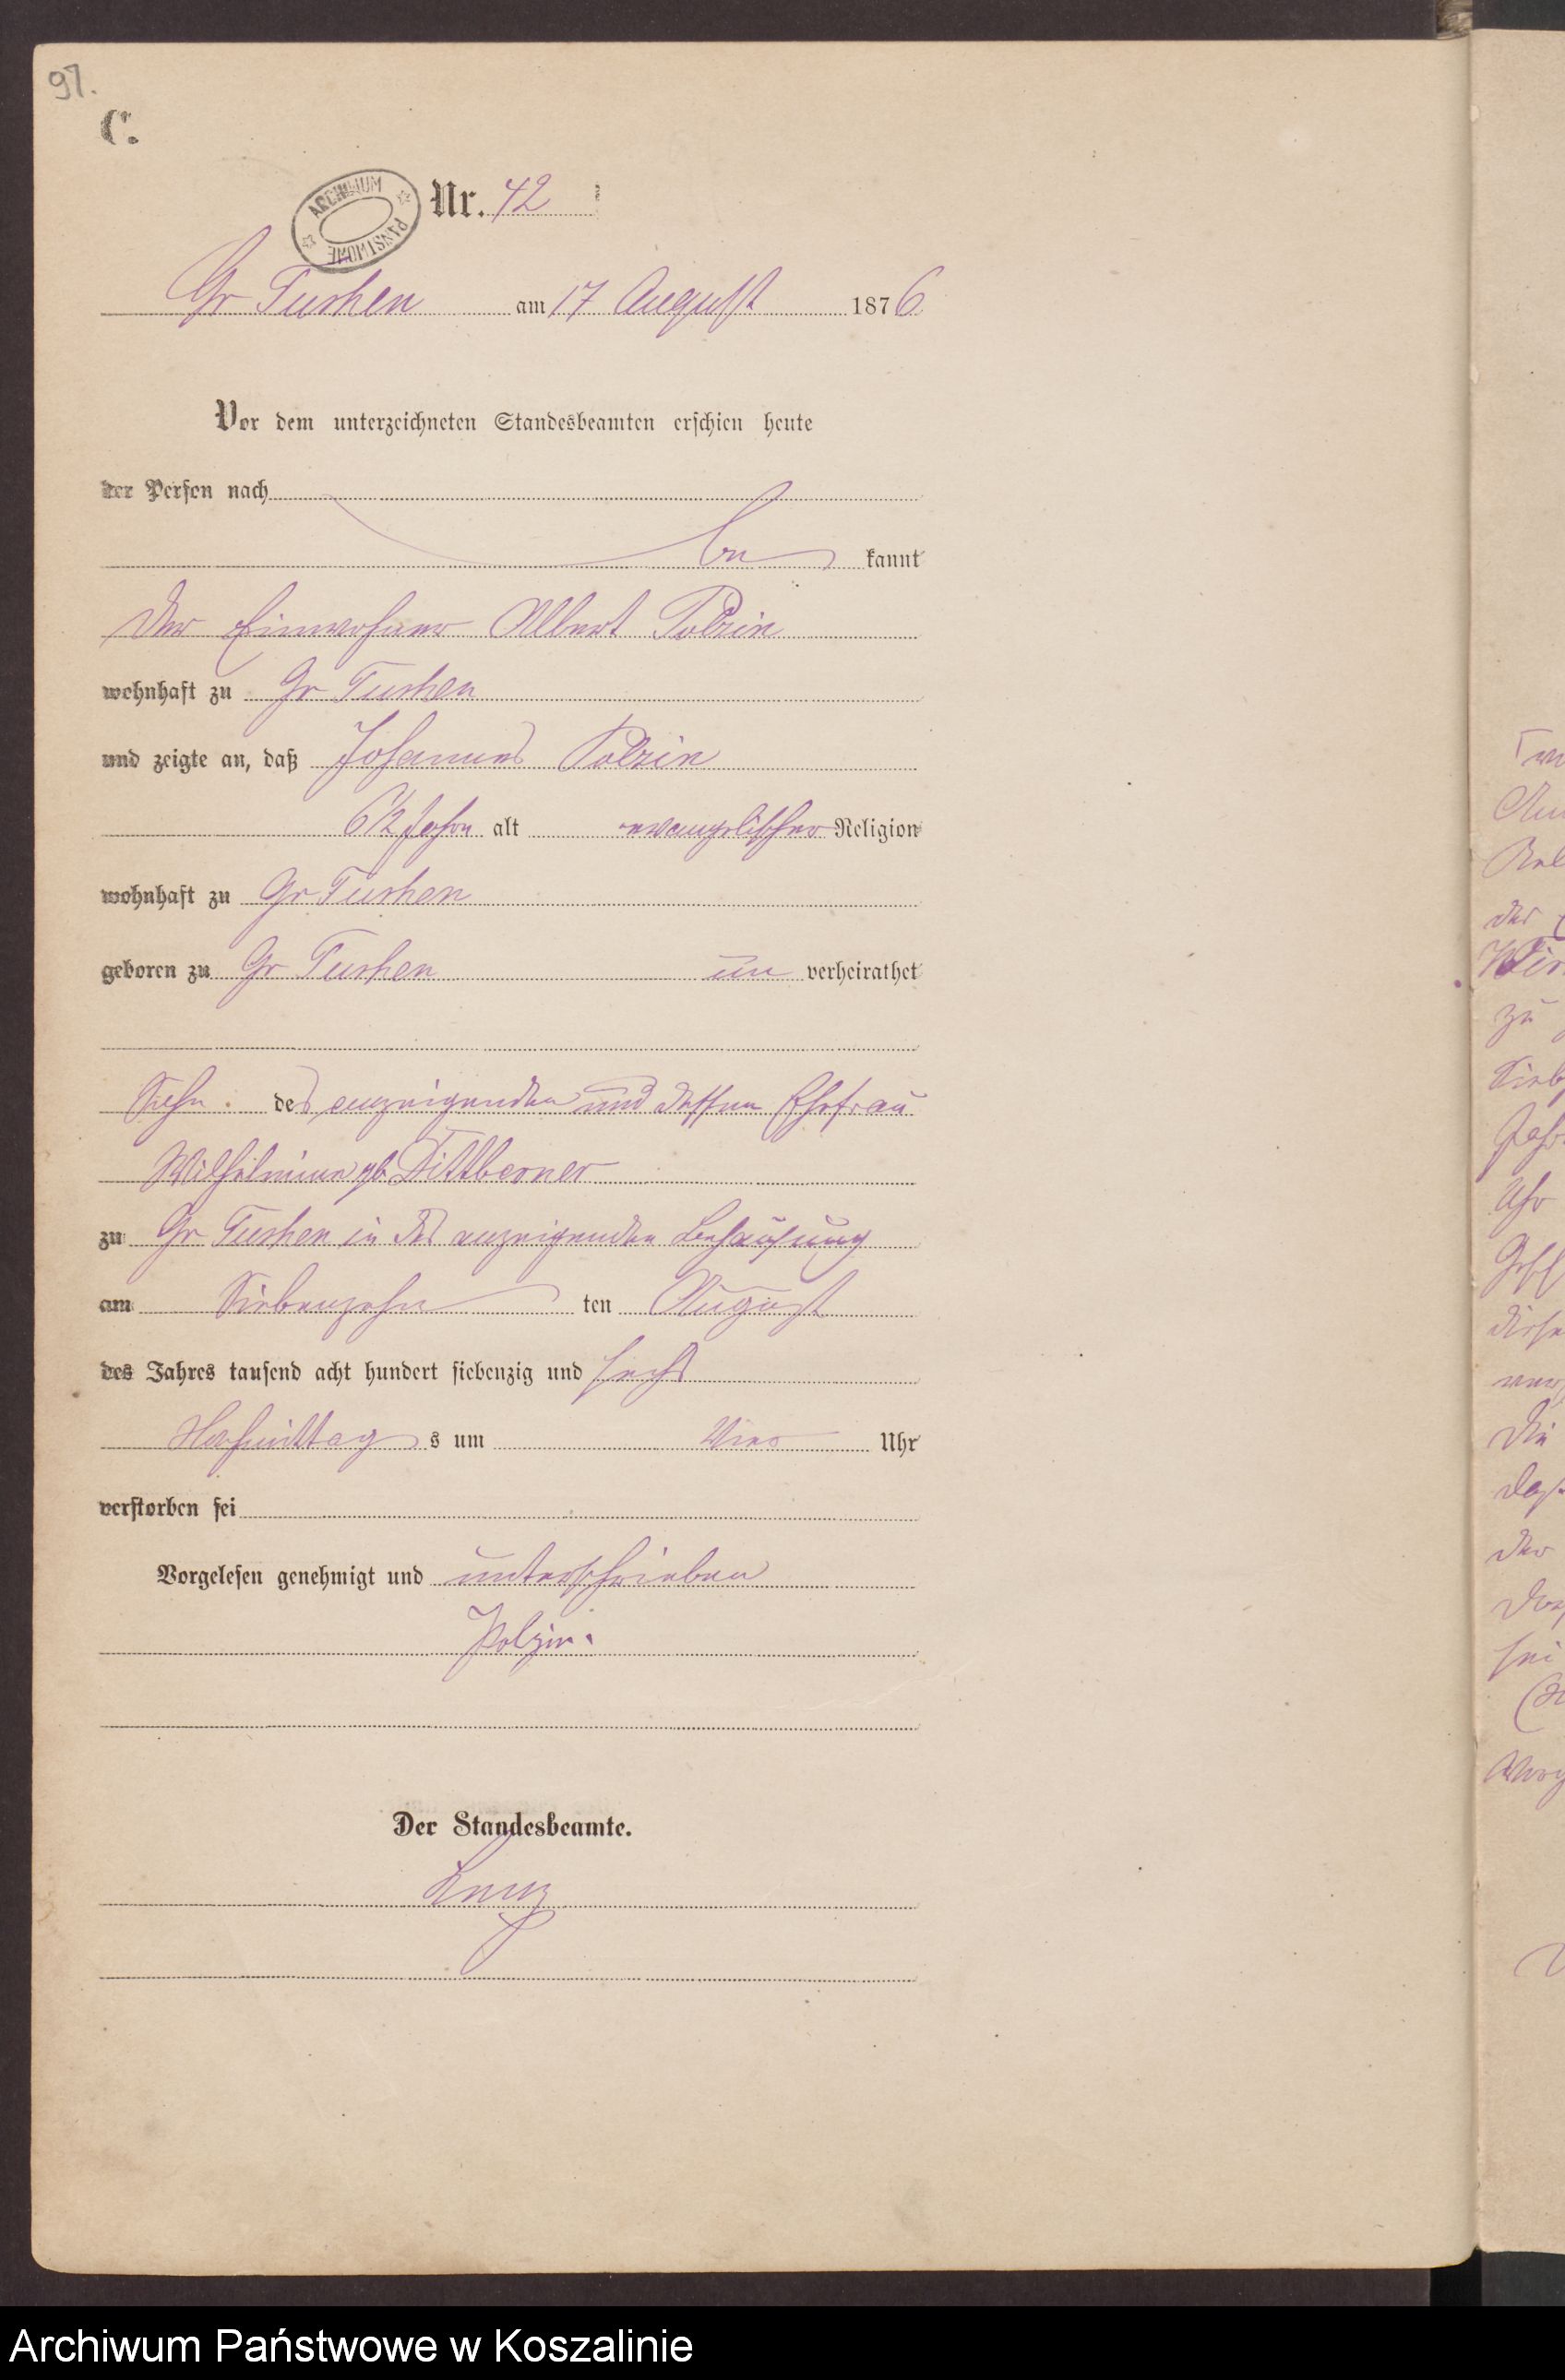 97.
C.
ARCHIWUM PAŃSTWOWE
Nr. 42
Gr Tushen am 17 August 1876
Vor dem unterzeichneten Standesbeamten erschien heute
der Person nach
be kannt
der Einwohner Albert Polzin
wohnhaft zu Gr Tushen
und zeigte an, daß Johannes Polzin
6 1/2 Jahre alt evangelischer Religion
wohnhaft zu Gr Tushen
geboren zu Gr Tushen un verheirathet
Sohn des anzeigenden und dessen Ehefrau
Wilhelmine gb Dittberner
zu Gr Tushen in des anzeigenden Behausung
am Siebenzehn ten August
des Jahres tausend acht hundert siebenzig und sechs
Nachmittag s um Vier Uhr
verstorben sei
Vorgelesen genehmigt und unterschrieben
Polzin.
Der Standesbeamte.
Archiwum Państwowe w Koszalinie